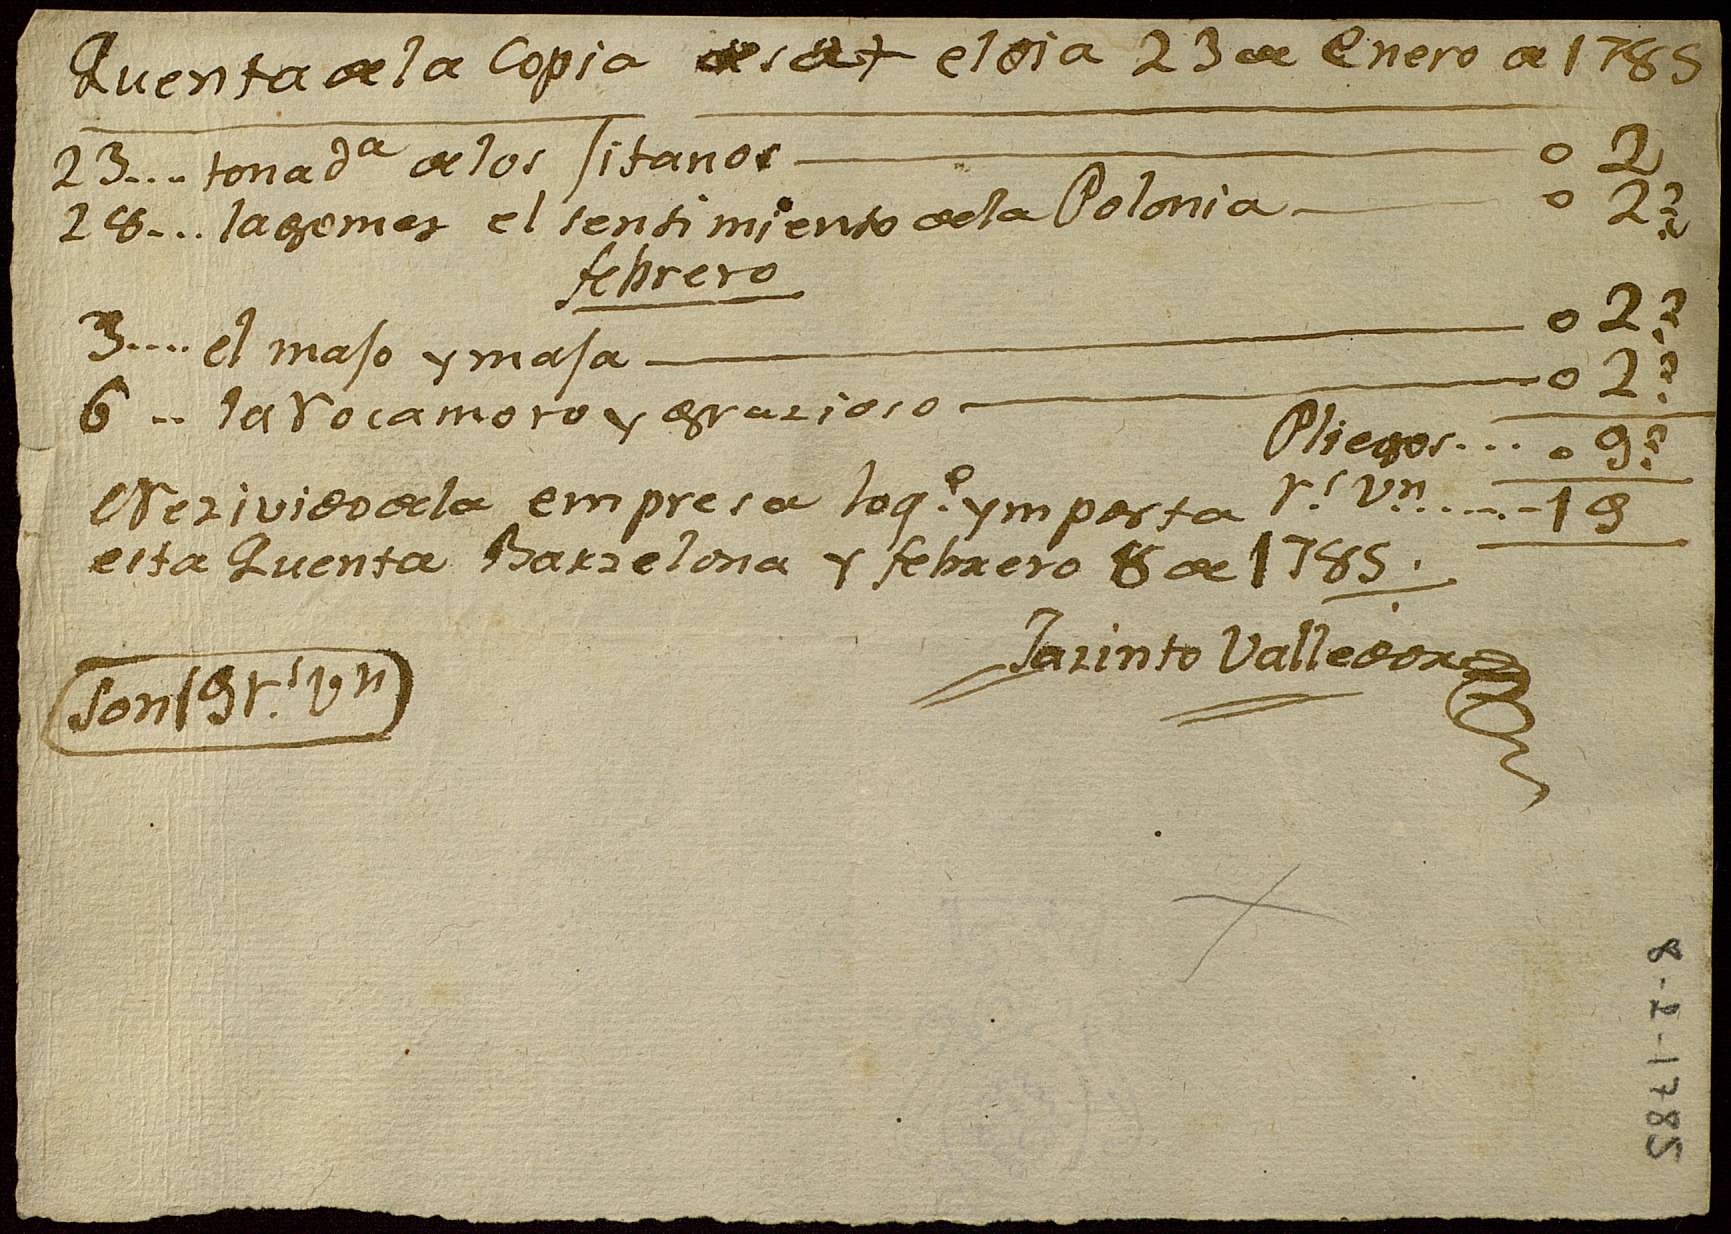 Quenta de la Copia desde el dia 23 de Enero de 1785
23.... tonad.ª de los Jitanos — 0 2
28... la gomez el sentimiento de la Polonia — 0 2½
febrero
3.... el majo y maja — 0 2½
6 .. la Rocamora y grazioso — 0 2½
Pliegos... . 9½
Rezivido de la empresa loq.e ymporta r.s v.n ..... 19
esta Quenta Barzelona y febrero 8 de 1785.
Jazinto Valledor
Son 19 r.s vn
8-2-1785